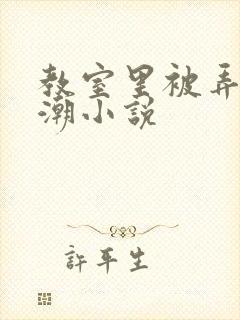 教室里被弄
潮小说
許平生